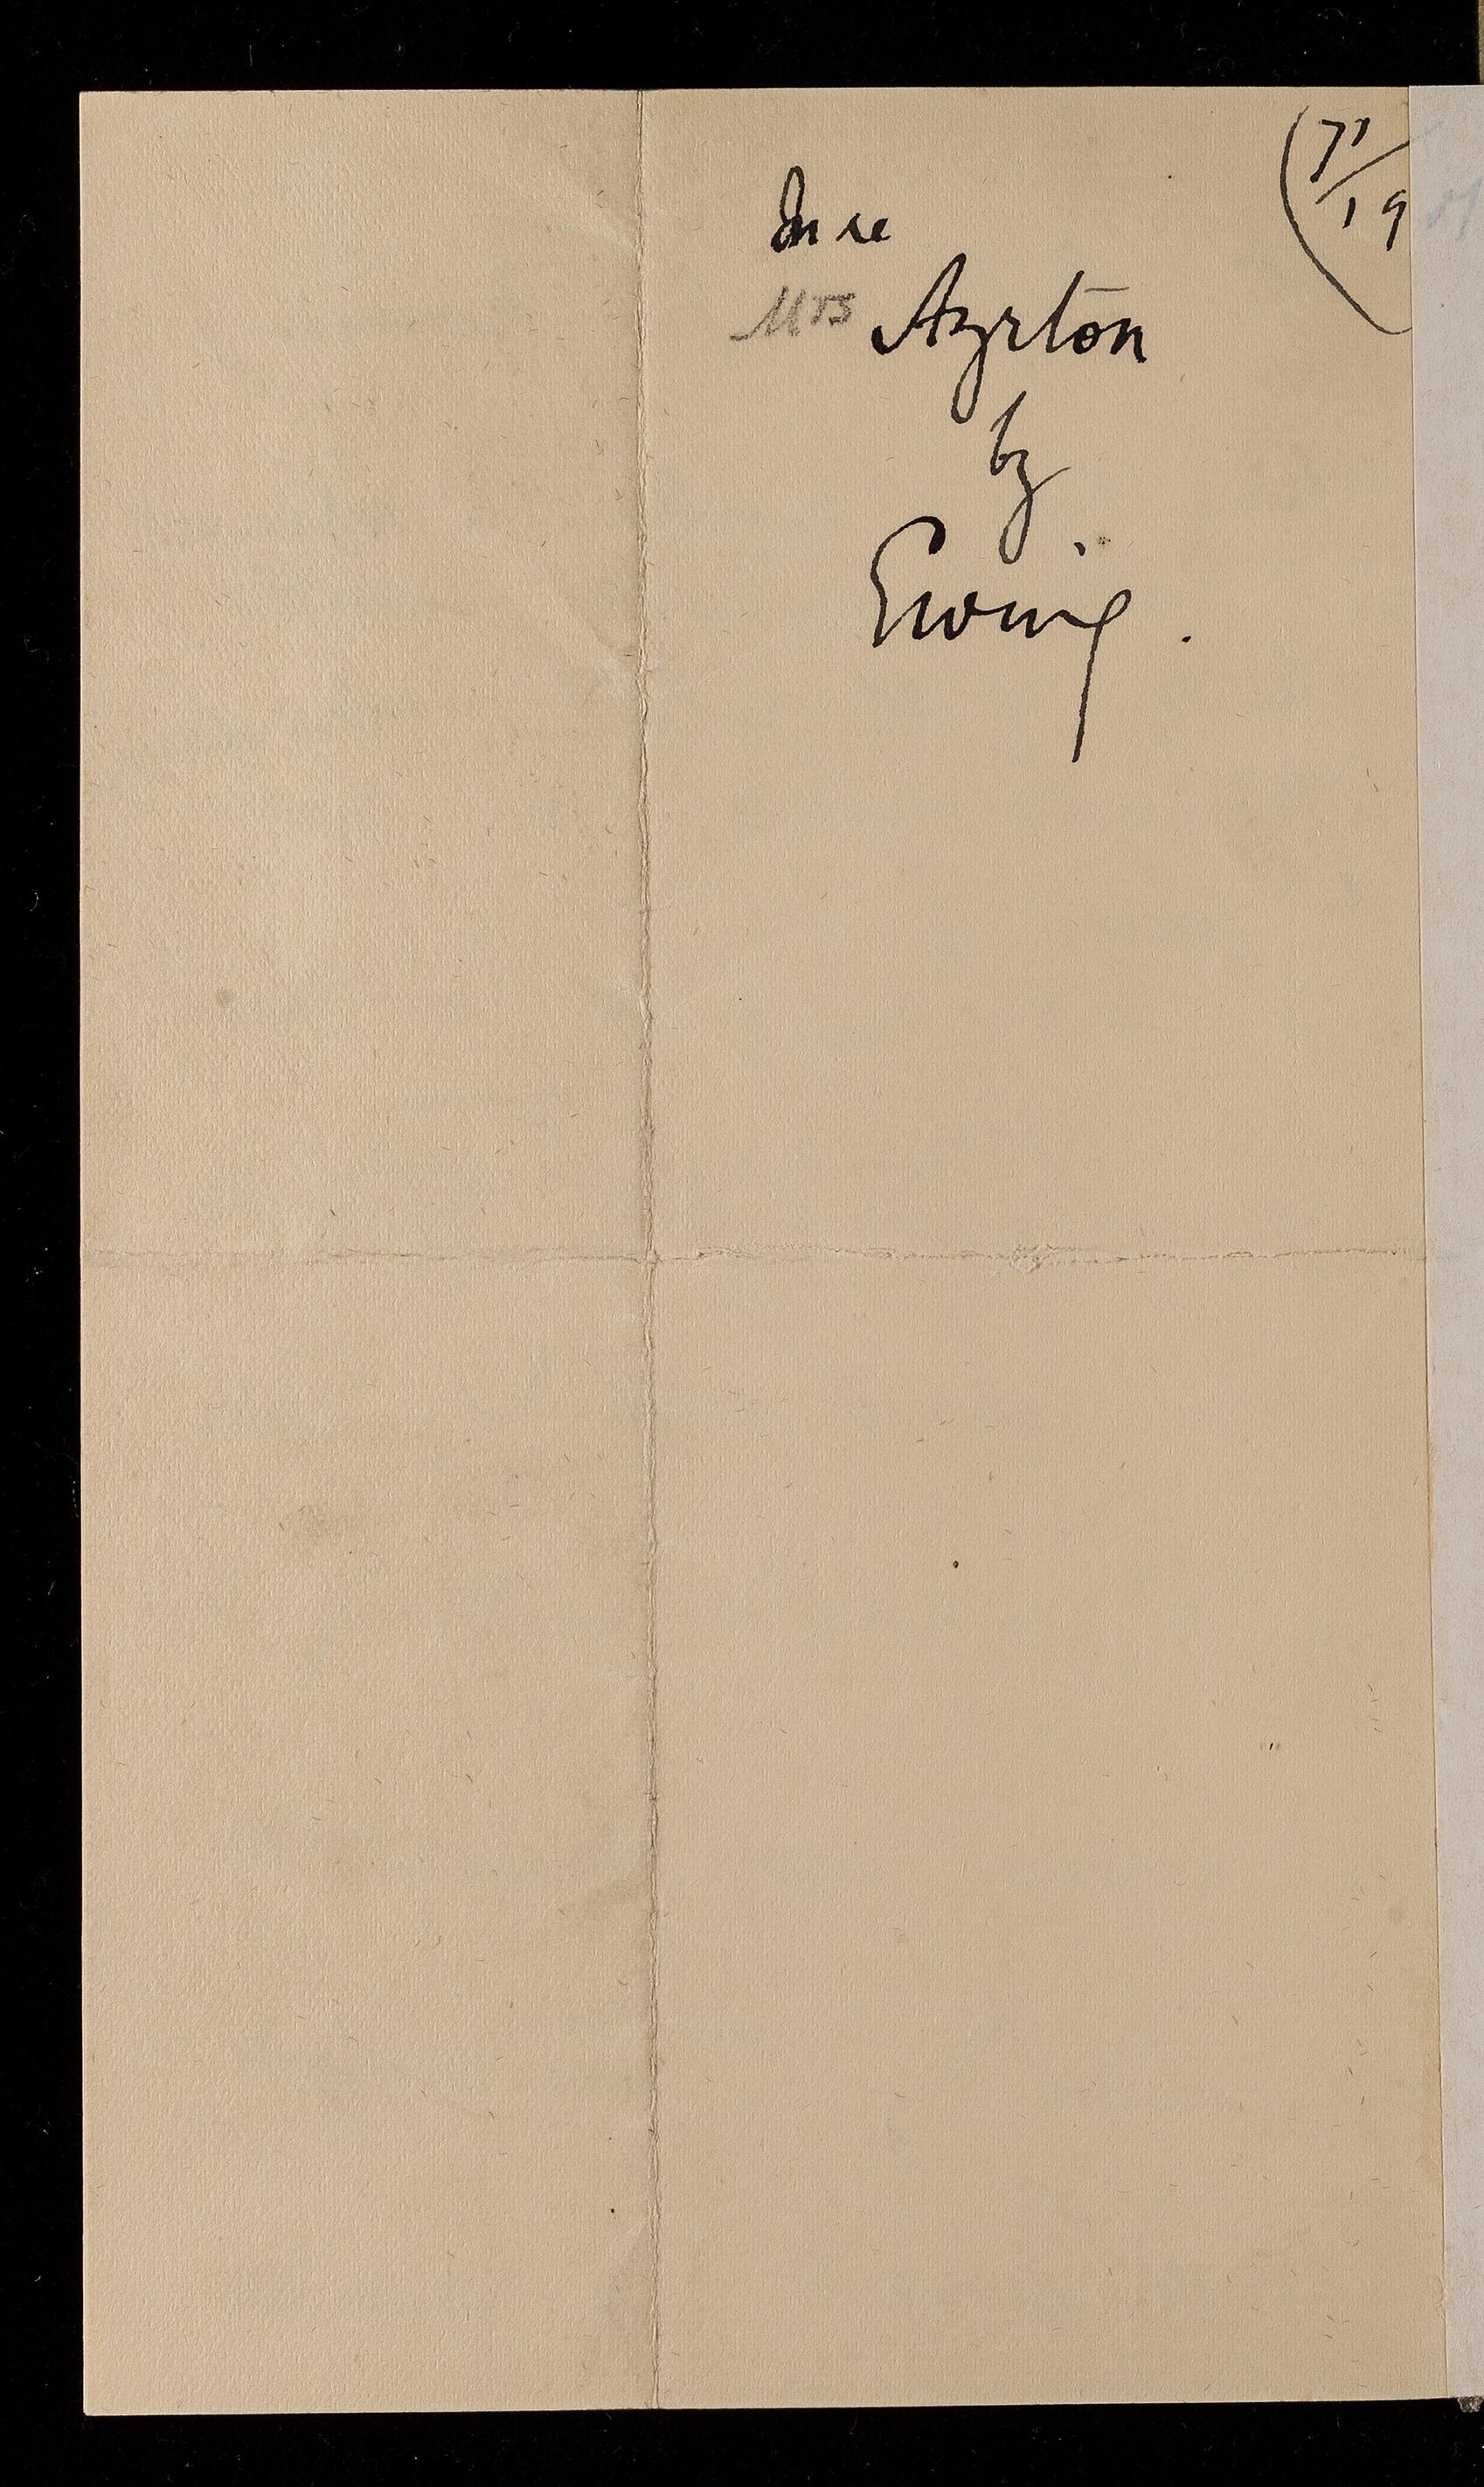 71/19
In re
Mrs Ayrton
by
Ewing.